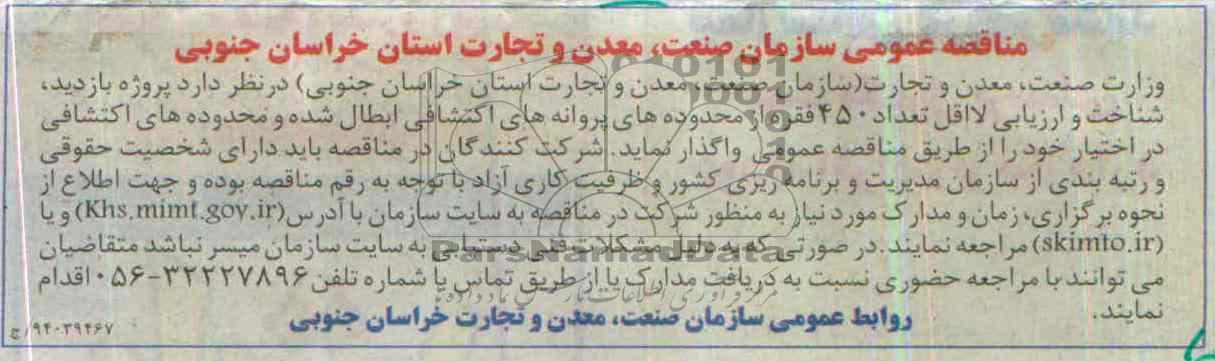 مناقصه عمومی سازمان صنعت، معدن و تجارت استان خراسان جنوبی
وزارت صنعت، معدن و تجارت(سازمان صنعت، معدن و تجارت استان خراسان جنوبی) درنظر دارد پروژه بازدید،
شناخت و ارزیابی لااقل تعداد ۴۵۰ فقره از محدوده های پروانه های اکتشافی ابطال شده و محدوده های اکتشافی
در اختیار خود را از طریق مناقصه عمومی واگذار نماید. شرکت کنندگان در مناقصه باید دارای شخصیت حقوقی
و رتبه بندی از سازمان مدیریت و برنامه ریزی کشور و ظرفیت کاری آزاد با توجه به رقم مناقصه بوده و جهت اطلاع از
نحوه برگزاری، زمان و مدارک مورد نیاز به منظور شرکت در مناقصه به سایت سازمان با آدرس (Khs.mimt.gov.ir) و یا
(skimto.ir) مراجعه نمایند. در صورتی که به دلیل مشکلات فنی دستیابی به سایت سازمان میسر نباشد متقاضیان
می توانند با مراجعه حضوری نسبت به دریافت مدارک یا از طریق تماس با شماره تلفن ۳۲۲۲۷۸۹۶-۰۵۶ اقدام
نمایند.
روابط عمومی سازمان صنعت، معدن و تجارت خراسان جنوبی
۹۴۰۳۹۴۶۷/ج
ParsNamadData